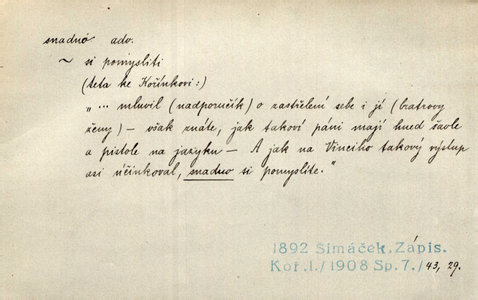 snadno adv.
~ si pomysliti
(teta ke Kořínkovi:)
„... mluvil (nadporučík) o zastřelení sebe i jé (bratrovy
ženy) — však znáte, jak takoví páni mají hned šavle
a pistole na jazyku — A jak na Vinciho takový výstup
asi účinkoval, snadno si pomyslíte."
1892 Šimáček, Zápis.
Koř. I./1908 Sp. 7./43, 29.